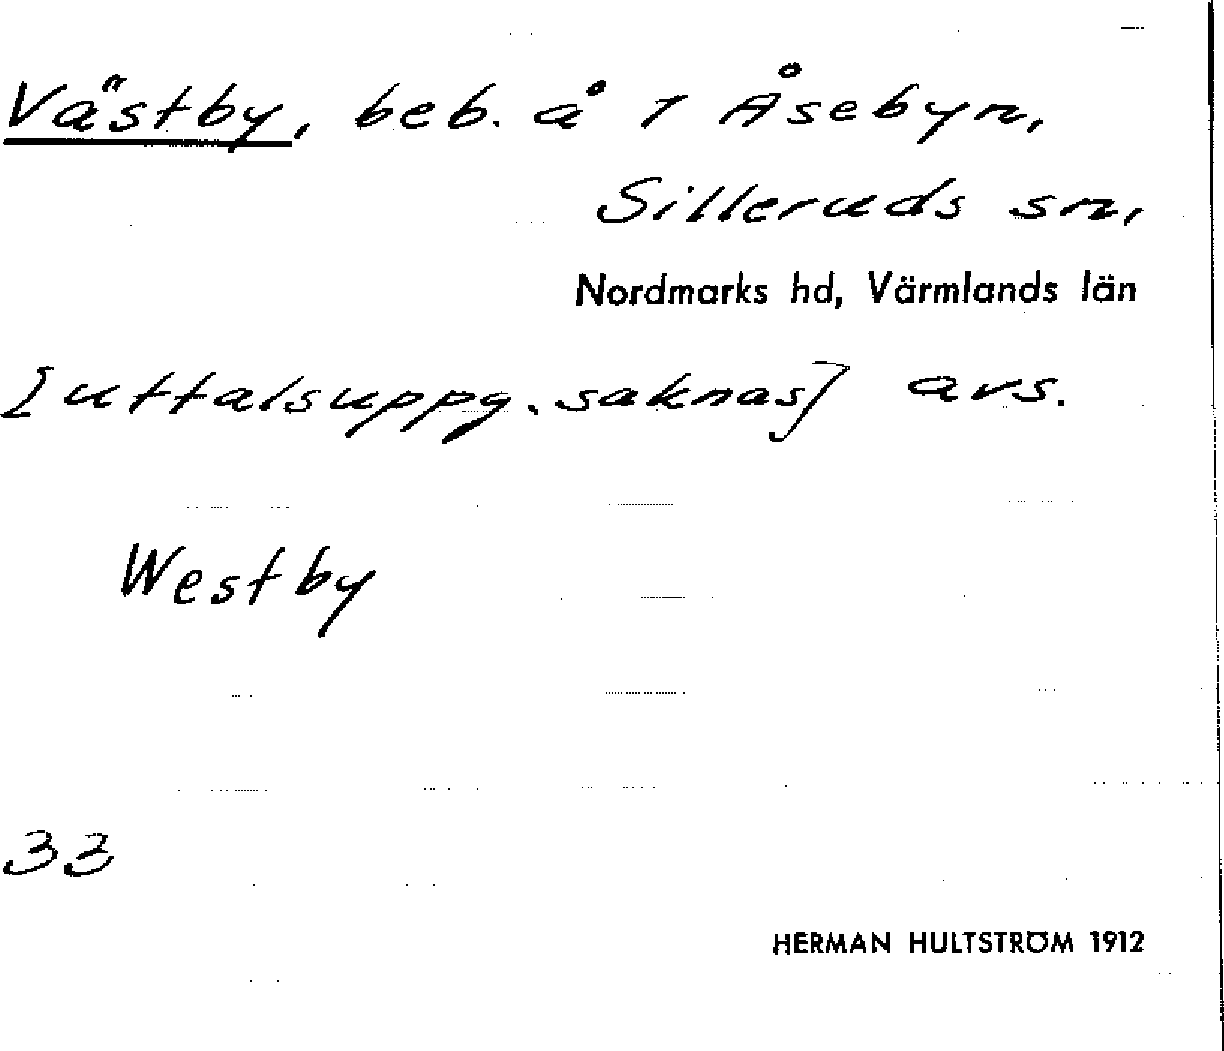 Västby, beb. å 1 Åsebyn,
Silleruds sn,
Nordmarks hd, Värmlands län
[uttalsuppg. saknas] avs.
Westby
33
HERMAN HULTSTRÖM 1912